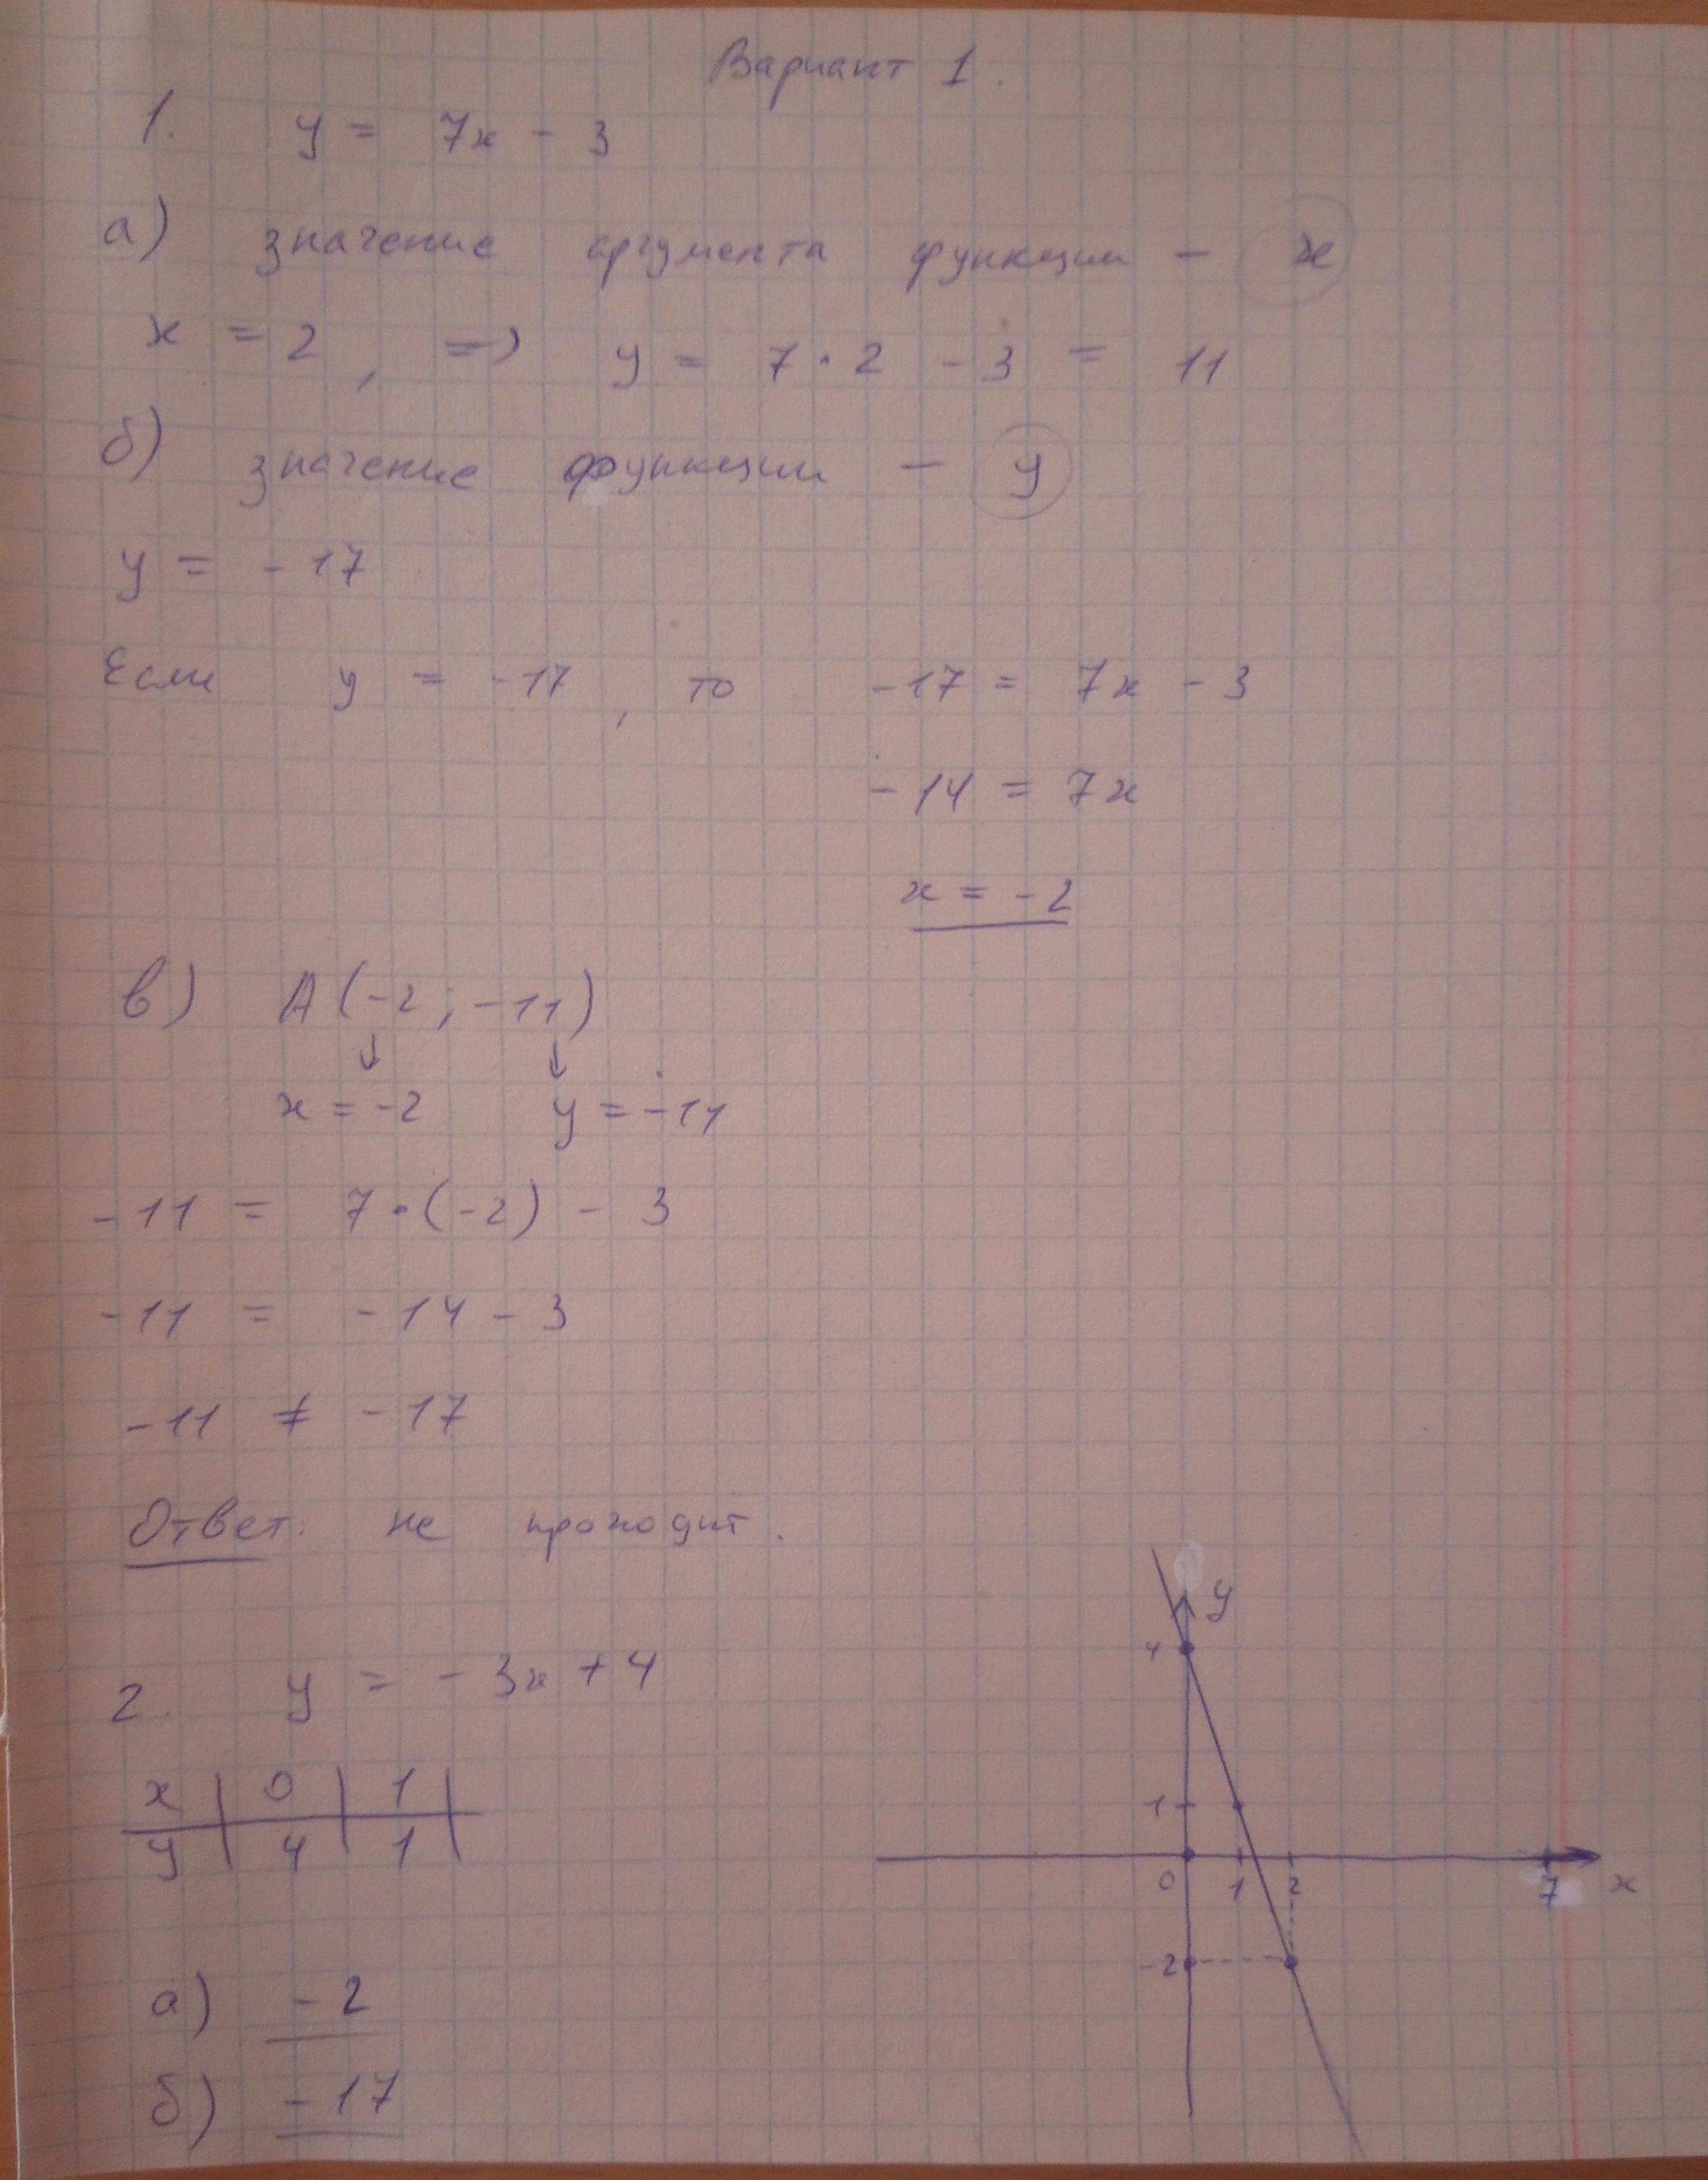 Вариант 1.
1. y = 7x - 3
а) значение аргумента функции — x
x = 2, => y = 7 · 2 - 3 = 11
б) значение функции — y
y = -17
Если y = -17, то -17 = 7x - 3
-14 = 7x
x = -2
в) A(-2; -11)
↓ ↓
x = -2 y = -11
-11 = 7·(-2) - 3
-11 = -14 - 3
-11 ≠ -17
Ответ: не проходит.
2. y = -3x + 4
x | 0 | 1 |
y | 4 | 1 |
а) -2
б) -17
y
4
1
0 1 2 7 x
-2